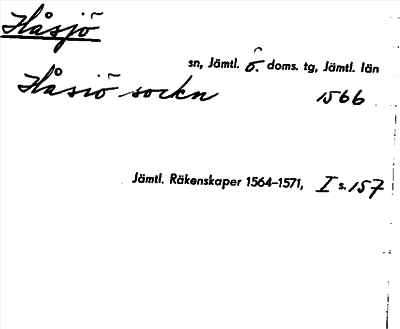 Håsjö
sn, Jämtl. ö. doms. tg, Jämtl. län
Håsiö sockn 1566
Jämtl. Räkenskaper 1564–1571, I s. 157